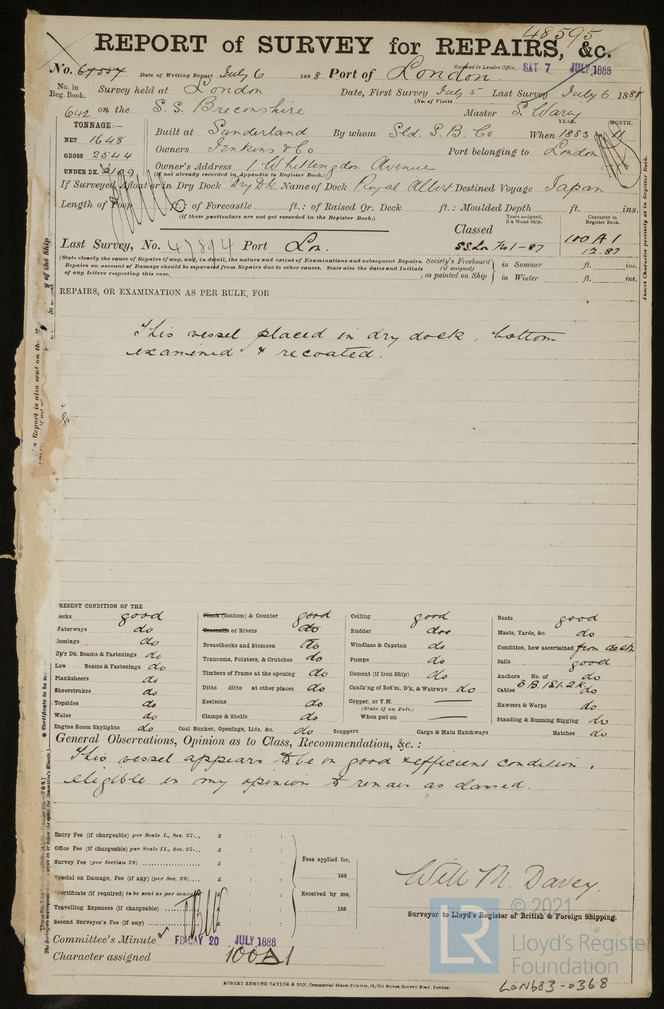 48595
REPORT of SURVEY for REPAIRS, &c.
Received in London Office, SAT 7 JULY 1888
No. Date of Writing Report July 6 1888 Port of London
No. in Reg. Book. Survey held at London Date, First Survey July 5 Last Survey July 6 1888
(No. of Visits
642 on the S.S. Breconshire Master S. Waring
TONNAGE:— YEAR. MONTH.
NET 1648 Built at Sunderland By whom Sld. S. B. Co When 1883 11
GROSS 2544 Owners Jenkins & Co Port belonging to London
UNDER DK. Owner's Address 1 Whittingdon Avenue
(if not already recorded in Appendix to Register Book.)
If Surveyed Afloat or in Dry Dock Dry Dk Name of Dock Royal Albert Destined Voyage Japan
Length of Poop ft.: of Forecastle ft.: of Raised Qr. Deck ft.: Moulded Depth ft. ins.
(if these particulars are not yet recorded in the Register Book.)
Years assigned, if a Wood Ship. Character in Register Book.
Classed 100 A 1
Last Survey, No. 47894 Port Lon. SS Ln No 1-87 12.87
(State clearly the cause of Repairs if any, and, in detail, the nature and extent of Examinations and subsequent Repairs.
Repairs on account of Damage should be separated from Repairs due to other causes. State also the dates and Initials
of any letters respecting this case.
Society's Freeboard (if assigned) as painted on Ship
in Summer ft. ins.
in Winter ft. ins.
Insert Character precisely as in Register Book.
REPAIRS, OR EXAMINATION AS PER RULE, FOR
This vessel placed in dry dock, bottom
examined & recoated.
Report is also sent on the
Certificate to be
PRESENT CONDITION OF THE
Decks good
Waterways do
Comings do
Up'r Dk. Beams & Fastenings do
Low Beams & Fastenings do
Planksheers do
Sheerstrakes do
Topsides do
Wales do
Engine Room Skylights do
Plank (Bottom) & Counter good
Treenails or Rivets do
Breasthooks and Stemson do
Transoms, Pointers, & Crutches do
Timbers of Frame at the opening do
Ditto ditto at other places do
Keelsons do
Clamps & Shelfs do
Coal Bunker, Openings, Lids, &c. do
Ceiling good
Rudder do
Windlass & Capstan do
Pumps do
Cement (if Iron Ship) do
Caulk'ng of Bot'm, D'k, & Watrwys do
Copper, or Y.M.
(State if on Felt.)
When put on
Scuppers Cargo & Main Hatchways
Boats good
Masts, Yards, &c. do
Condition, how ascertained from deck
Sails good
Anchors No. of do
3 B. 1 St. 2 K.
Cables do
Hawsers & Warps do
Standing & Running Rigging do
Hatches do
General Observations, Opinion as to Class, Recommendation, &c.:
This vessel appears to be in good & efficient condition,
eligible in my opinion to remain as classed.
Entry Fee (if chargeable) per Scale I., Sec. 27... £ : :
Office Fee (if chargeable) per Scale II., Sec. 27... £ : :
Survey Fee (per Section 28) £ : :
Special on Damage, Fee (if any) (per Sec. 28)... £ : :
Certificate (if required) to be sent as per margin
Travelling Expenses (if chargeable)
Second Surveyor's Fee (if any)
Fees applied for, 188
Received by me, 188
Will M. Davey.
Surveyor to Lloyd's Register of British & Foreign Shipping.
Committee's Minute FRIDAY 20 JULY 1888
Character assigned 100 A 1
ROBERT EDMUND TAYLOR & SON, Commercial Steam Printers, 19, Old Street, Goswell Road, London.
© 2021
LR
Lloyd's Register
Foundation
LON683-0368